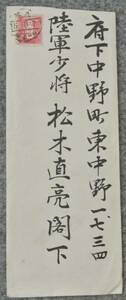 府下中野町東中野一、七三四
陸軍少将 松木直亮閣下